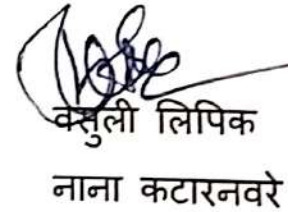 वसुली लिपिक
नाना कटारनवरे